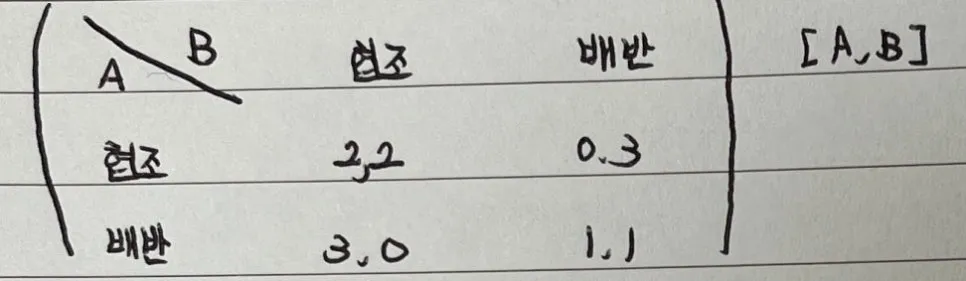 A B 협조 배반 [A, B]
협조 2,2 0.3
배반 3.0 1,1